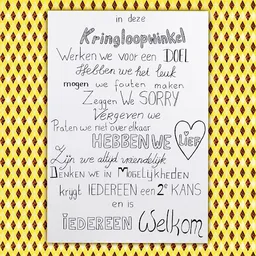 in deze
Kringloopwinkel
Werken we voor een DOEL
Hebben we het leuk
mogen we fouten maken
Zeggen We SORRY
Vergeven we
Praten we niet over elkaar
HEBBEN WE LIEF
Zijn we altijd vriendelijk
DENKEN WE IN MOGELIJKHEDEN
krijgt IEDEREEN een 2e KANS
en is
IEDEREEN Welkom